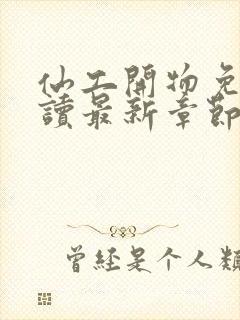 仙工開物免
讀最新章節
曾經是个人類